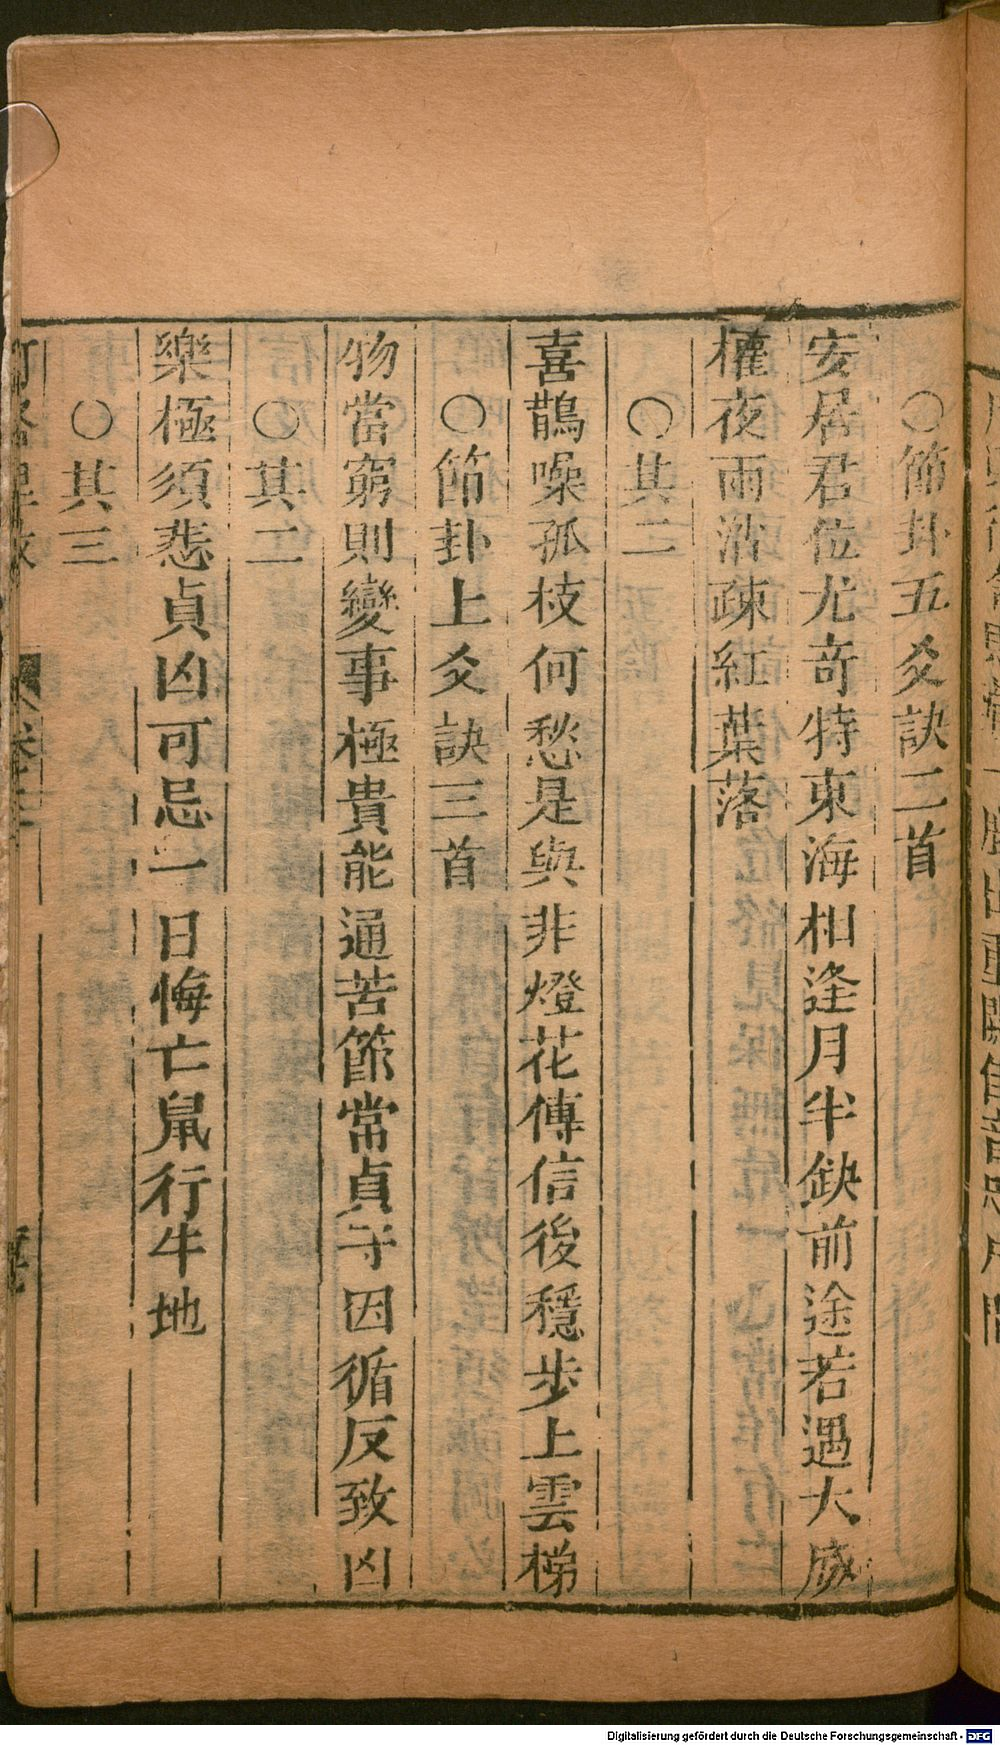 ○節卦五爻訣二首
安居君位尤竒特東海相逢月半缺前途若遇大
權夜雨滔疎紅葉落
○其二
喜鵲噪孤枝何愁是與非燈花傳信後穩步上雲梯
○節卦上爻訣三首
物當窮則變事極貴能通苦節當貞守因循反致凶
○其二
樂極須悲貞凶可忌一日悔亡鼠行牛地
○其三
Digitalisierung gefördert durch die Deutsche Forschungsgemeinschaft - DFG